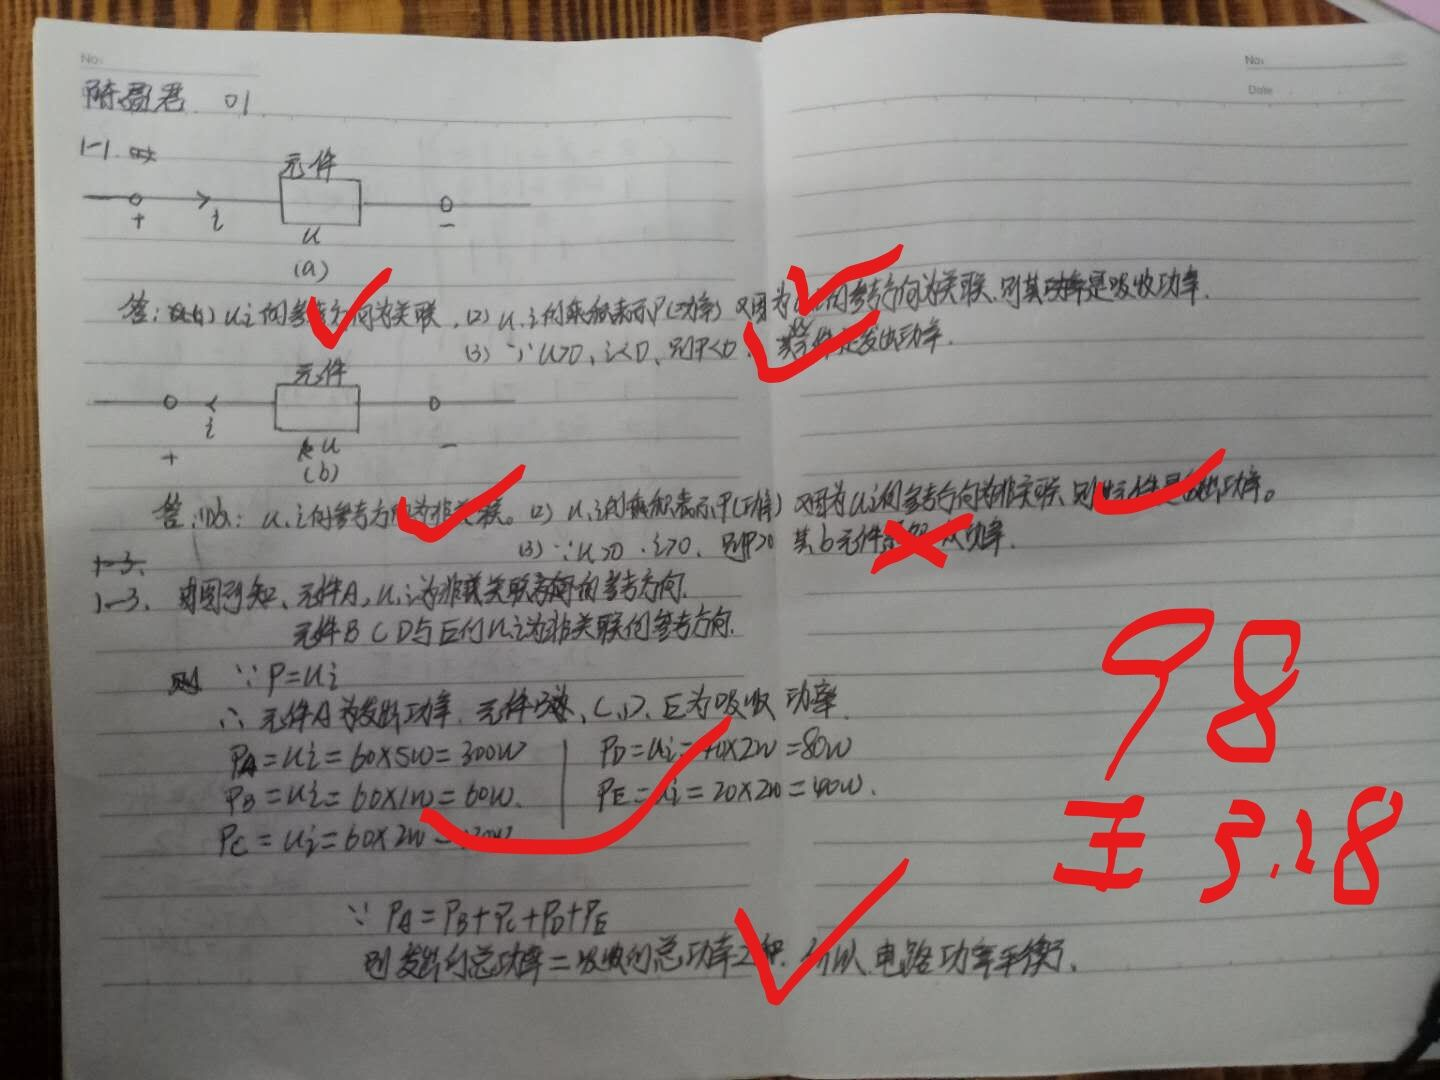 No:
No:
Date
陈盈君 01
1-1.
元件
+ i u -
(a)
答: u、i的参考方向为关联. (2) u、i的乘积表示P(功率) 又因为u、i的参考方向为关联、则其功率是吸收功率.
(3) ∵u>0、i<0、则P<0、其元件是发出功率.
元件
i
+ u -
(b)
答: u、i的参考方向为非关联。(2) u、i的乘积表示P(功率) 又因为u、i的参考方向为非关联、则 元件是发出功率。
(3) ∵u>0、i>0、则P>0 其b元件 功率.
1-3.
1-3、由图可知、元件A、u、i为非关联 的参考方向.
元件B C D与E的u、i为非关联的参考方向.
则 ∵P=ui
∴元件A为发出功率. 元件B、C、D、E为吸收功率.
PA=ui=60×5W=300W PD=ui=40×2W=80W
PB=ui=60×1W=60W. PE=ui=20×2W=40W.
PC=ui=60×2W=120W
∵PA=PB+PC+PD+PE
则发出的总功率=吸收的总功率之和. 所以电路功率平衡.
98
王 3.28